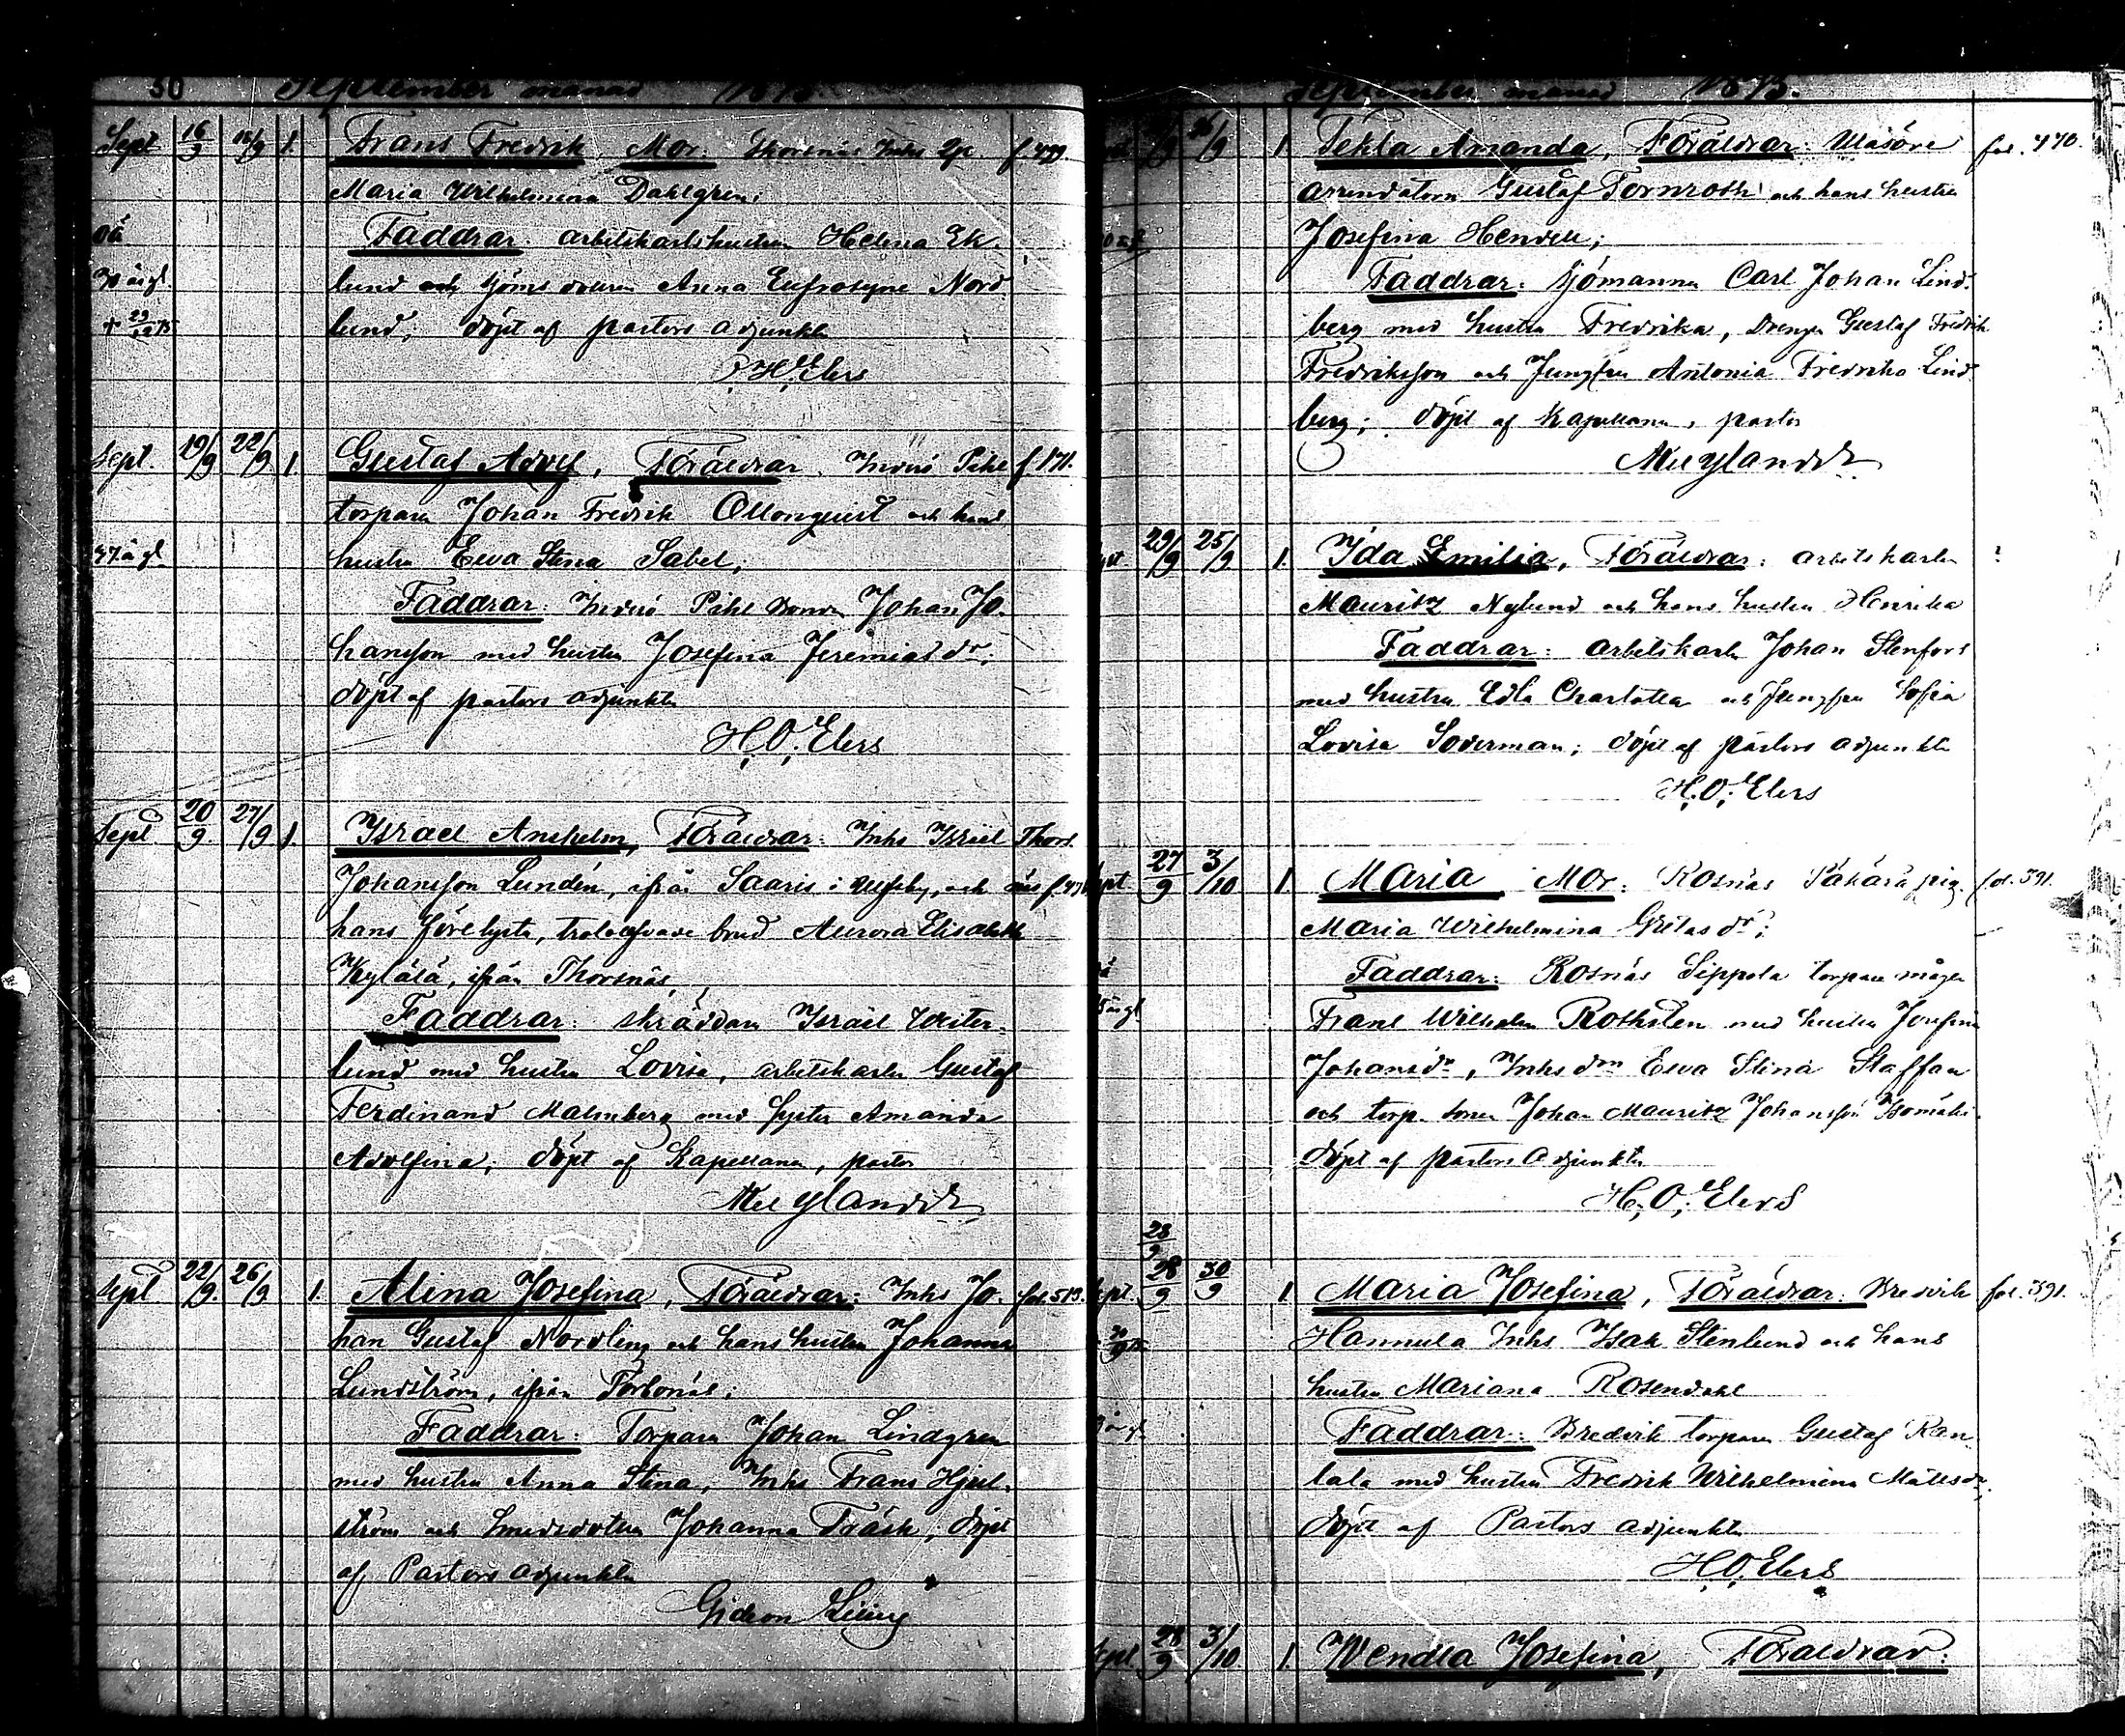 50 September månad 1875.
Sept 16/9 18/9 1. Frans Fredrik, Mor: Inhs f. 499
Maria Wilhelmina Dahlgren;
Faddrar: arbetskarlshustrun Helena Ek-
30 år gl. lund och Anna Eufrosyne Nord-
lund; döpt af pastors adjunkten
H.O. Elers
Sept. 19/9 22/9 1 Gustaf Adolf, Föräldrar: Pihl f. 171.
torparen Johan Fredrik Ollonquist och hans
37 år gl. hustru Ewa Stina Sabel;
Faddrar: Pihl bonden Johan Jo-
hansson med hustru Josefina Jeremiasdr;
döpt af pastors adjunkten
H.O. Elers
Sept 20/9. 27/9. 1. Israel Anshelm, Föräldrar: Inhs Israel Thors
Johansson Lundén, ifrån Saaris i och näs
hans förelysta, trolofvade brud Aurora Elisabeth
Kylälä, ifrån Thorsnäs,
Faddrar: skräddaren Israel Wester-
lund med hustru Lovisa, arbetskarlen Gustaf
Ferdinand Malmberg med syster Amanda
Adolfina; döpt af Kapellanen, pastor
Sept 22/9. 26/9 1. Alina Josefina, Föräldrar: Inhs Jo- fol. 519.
han Gustaf Nordling och hans hustru Johanna
Lundström, ifrån
Faddrar: Torparen Johan Lindgren
med hustru Anna Stina, Inhs Frans Hjul-
ström och smedsdottren Johanna Träsk; döpt
af Pastors adjunkten
Gideon
September månad 1875.
1 Tekla Amanda, Föräldrar: fol. 470.
arrendatorn Gustaf Tornroth och hans hustru
Josefina Hendell;
Faddrar: sjömannen Carl Johan Lind-
berg med hustru Fredrika, drengen Gustaf Fredrik
Fredriksson och Jungfru Antonia Fredrika Lind-
berg; döpt af Kapellanen, pastor
29/9 25/9 1. Ida Emilia, Föräldrar: arbetskarlen ?
Mauritz Nylund och hans hustru Henrika
Faddrar: arbetskarlen Johan Stenfors
med hustru Edla Charlotta och Jungfru Sofia
Lovisa Soderman; döpt af pastors adjunkten
H.O. Elers
Sept 27/9 3/10 1 Maria Mor: Rosnäs pig. fol. 391.
Maria Wilhelmina Gretasdr;
Faddrar: Rosnäs Sippola torpare mågen
Frans Wilhelm Rothsten med hustru Josefina
Johansdr, Inhs dm Ewa Stina Staffan
och torp. sonen Johan Mauritz Johansson
döpt af pastors adjunkten
H.O. Elers
28/9
Sept. 28/9 30/9 1 Maria Josefina, Föräldrar: Bredvik fol. 391.
Hannula Inhs Isak Stenlund och hans
hustru Mariana Rosendahl
Faddrar: Bredvik torparen Gustaf Ran-
tala med hustru Fredrik Wilhelmina Mattsdr,
döpt af Pastors adjunkten
H.O. Elers
Sept. 28/9 3/10. 1. Wendla Josefina, Föräldrar: